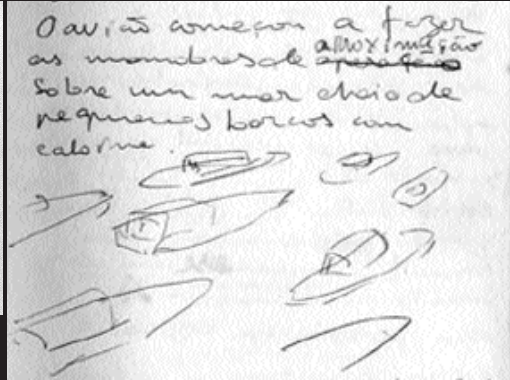 O avião começou a fazer
as manobras de aproximação
sobre um mar cheio de
pequenos barcos com